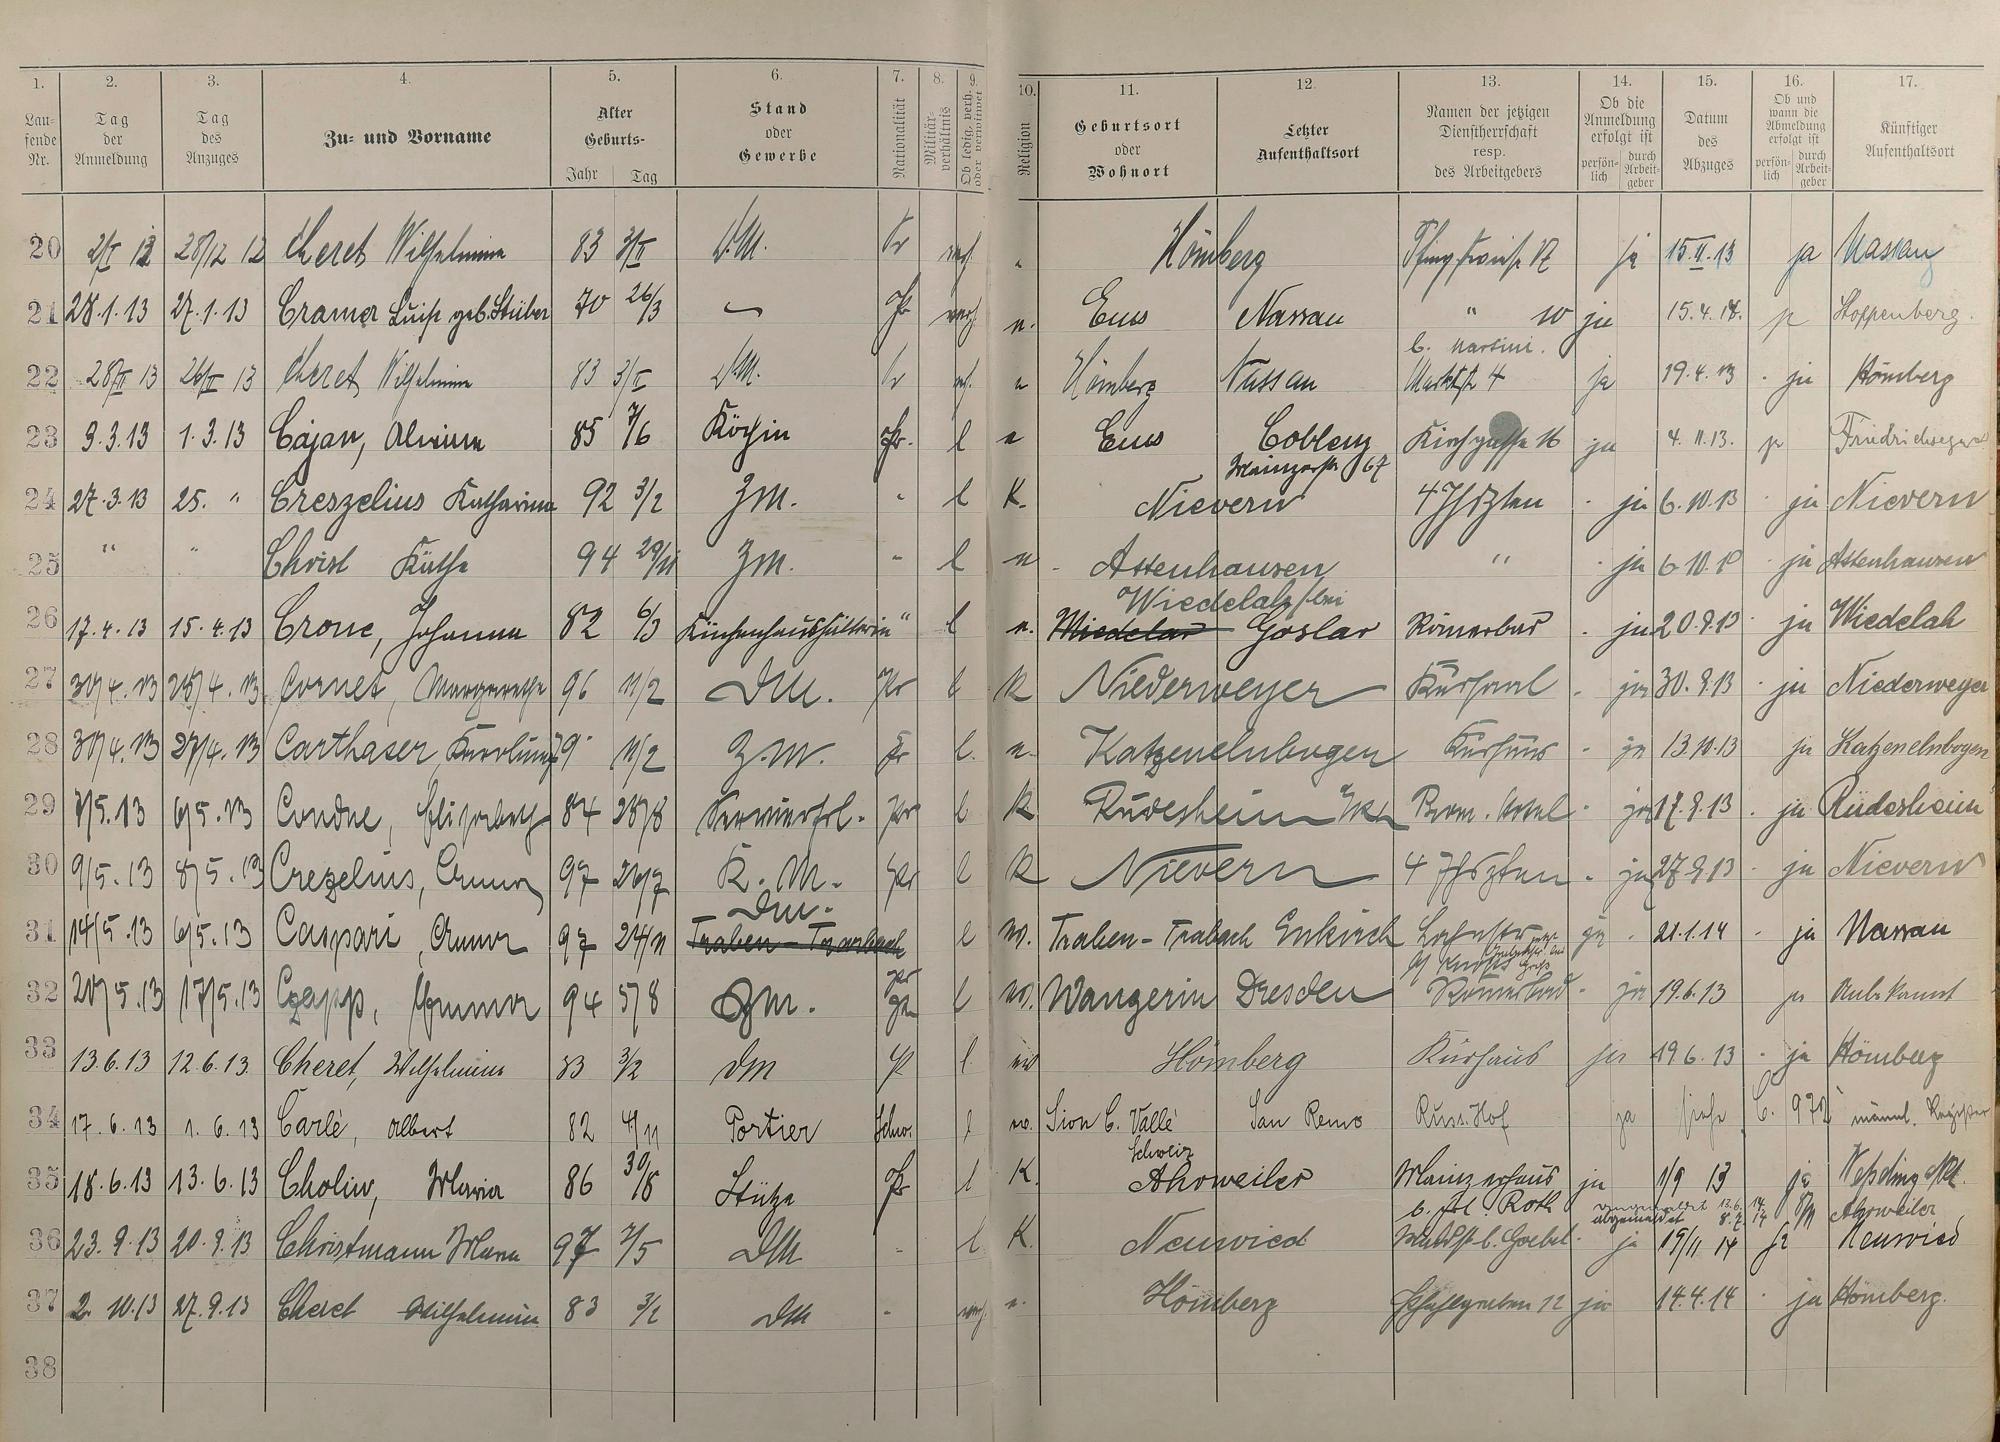 1. 2. 3. 4. 5. 6. 7. 8. 9. 10. 11. 12. 13. 14. 15. 16. 17.
Lau-
fende
Nr.
Tag
der
Anmeldung
Tag
des
Anzuges
Zu- und Vorname
Alter
Geburts-
Jahr Tag
Stand
oder
Gewerbe
Nationalität
Militär-
verhältnis
Ob ledig, verh.
oder verwitwet
Religion
Geburtsort
oder
Wohnort
Letzter
Aufenthaltsort
Namen der jetzigen
Dienstherrschaft
resp.
des Arbeitgebers
Ob die
Anmeldung
erfolgt ist
persön-
lich
durch
Arbeit-
geber
Datum
des
Abzuges
Ob und
wann die
Abmeldung
erfolgt ist
persön-
lich
durch
Arbeit-
geber
Künftiger
Aufenthaltsort
20 28/12 12 Cheret Wilhelmine 83 3/II D.M. Pr Hömberg ja 15.II.13 ja Nassau
21 28.1.13 27.1.13 Cramer Luise geb. Stüber 70 26/3 Pr Ems Nassau " 10 ja 15.4.14. Stoppenberg.
b. Martini.
22 28/II 13 26/II 13 Cheret Wilhelmine 83 3/II D.M. Pr Hömberg Nassau Marktstr 4 ja 19.4.13 ja Hömberg
23 9.3.13 1.3.13 Cajan, Alwine 85 7/6 Köchin Pr. l Ems Coblenz Kirchgasse 16 ja 4.11.13.
Mainzerstr 67
24 27.3.13 25. " Creszelius Katharina 92 3/2 ZM. " l K. Nievern 4 Jhrszten ja 6.10.13 ja Nievern
25 " " Christ Käthe 94 29/11 ZM. " l Attenhausen " ja 6.10.13 ja Attenhausen
Wiedelah/bei
26 17.4.13 15.4.13 Crone, Johanna 82 6/3 Küchenhaushälterin " l Goslar Römerbad ja 20.9.13 ja Wiedelah
27 30/4.13 Cornet, Margarethe 96 11/2 DM. Pr l K Niederweyer Kursaal ja 30.9.13 ja Niederweyer
28 30/4.13 27/4.13 Carthaser, Karoline 11/2 Z.M. Pr l. Katzenelnbogen Kurhaus ja 13.10.13 ja Katzenelnbogen
29 7/5.13 6/5.13 Condne, Elisabeth 84 28/8 Servierfrl. Pr l K Rüdesheim Brem. Hotel ja 17.9.13 ja Rüdesheim
30 9/5.13 8/5.13 Crezelius, Anna 97 26/7 K.M. Pr l K Nievern 4 Jhrszten ja 27.9.13 ja Nievern
DM.
31 14/5.13 6/5.13 Caspari, Anna 97 24/11 Traben-Trarbach l Traben-Trabach Enkirch ja 21.1.14 ja Nassau
32 20/5.13 17/5.13 Czapp, Emma 94 5/8 ZM. Pr l Wangerin Dresden Römerbad ja 19.6.13 ja Unbekannt
33 13.6.13 12.6.13 Cheret, Wilhelmine 83 3/2 DM l Hömberg Kurhaus ja 19.6.13 ja Hömberg
34 17.6.13 1.6.13 Carlé, Albert 82 4/11 Portier Schw. l Sion C. Vallé San Remo Russ. Hof ja siehe C. 972 männl. Register
Schweiz
35 18.6.13 13.6.13 Choliw, Maria 86 30/8 Stütze Pr l K. Ahrweiler Mainzerhaus ja 1/9 13 ja
b. Frl Roth abgemeldet 8.7.14 Ahrweiler
36 23.9.13 20.9.13 Christmann Maria 97 7/5 DM " l K. Neuwied b. Goebel ja 19/11 14 Neuwied
37 2.10.13 27.9.13 Cheret Wilhelmine 83 3/2 DM " Hömberg ja 14.4.14 ja Hömberg.
38